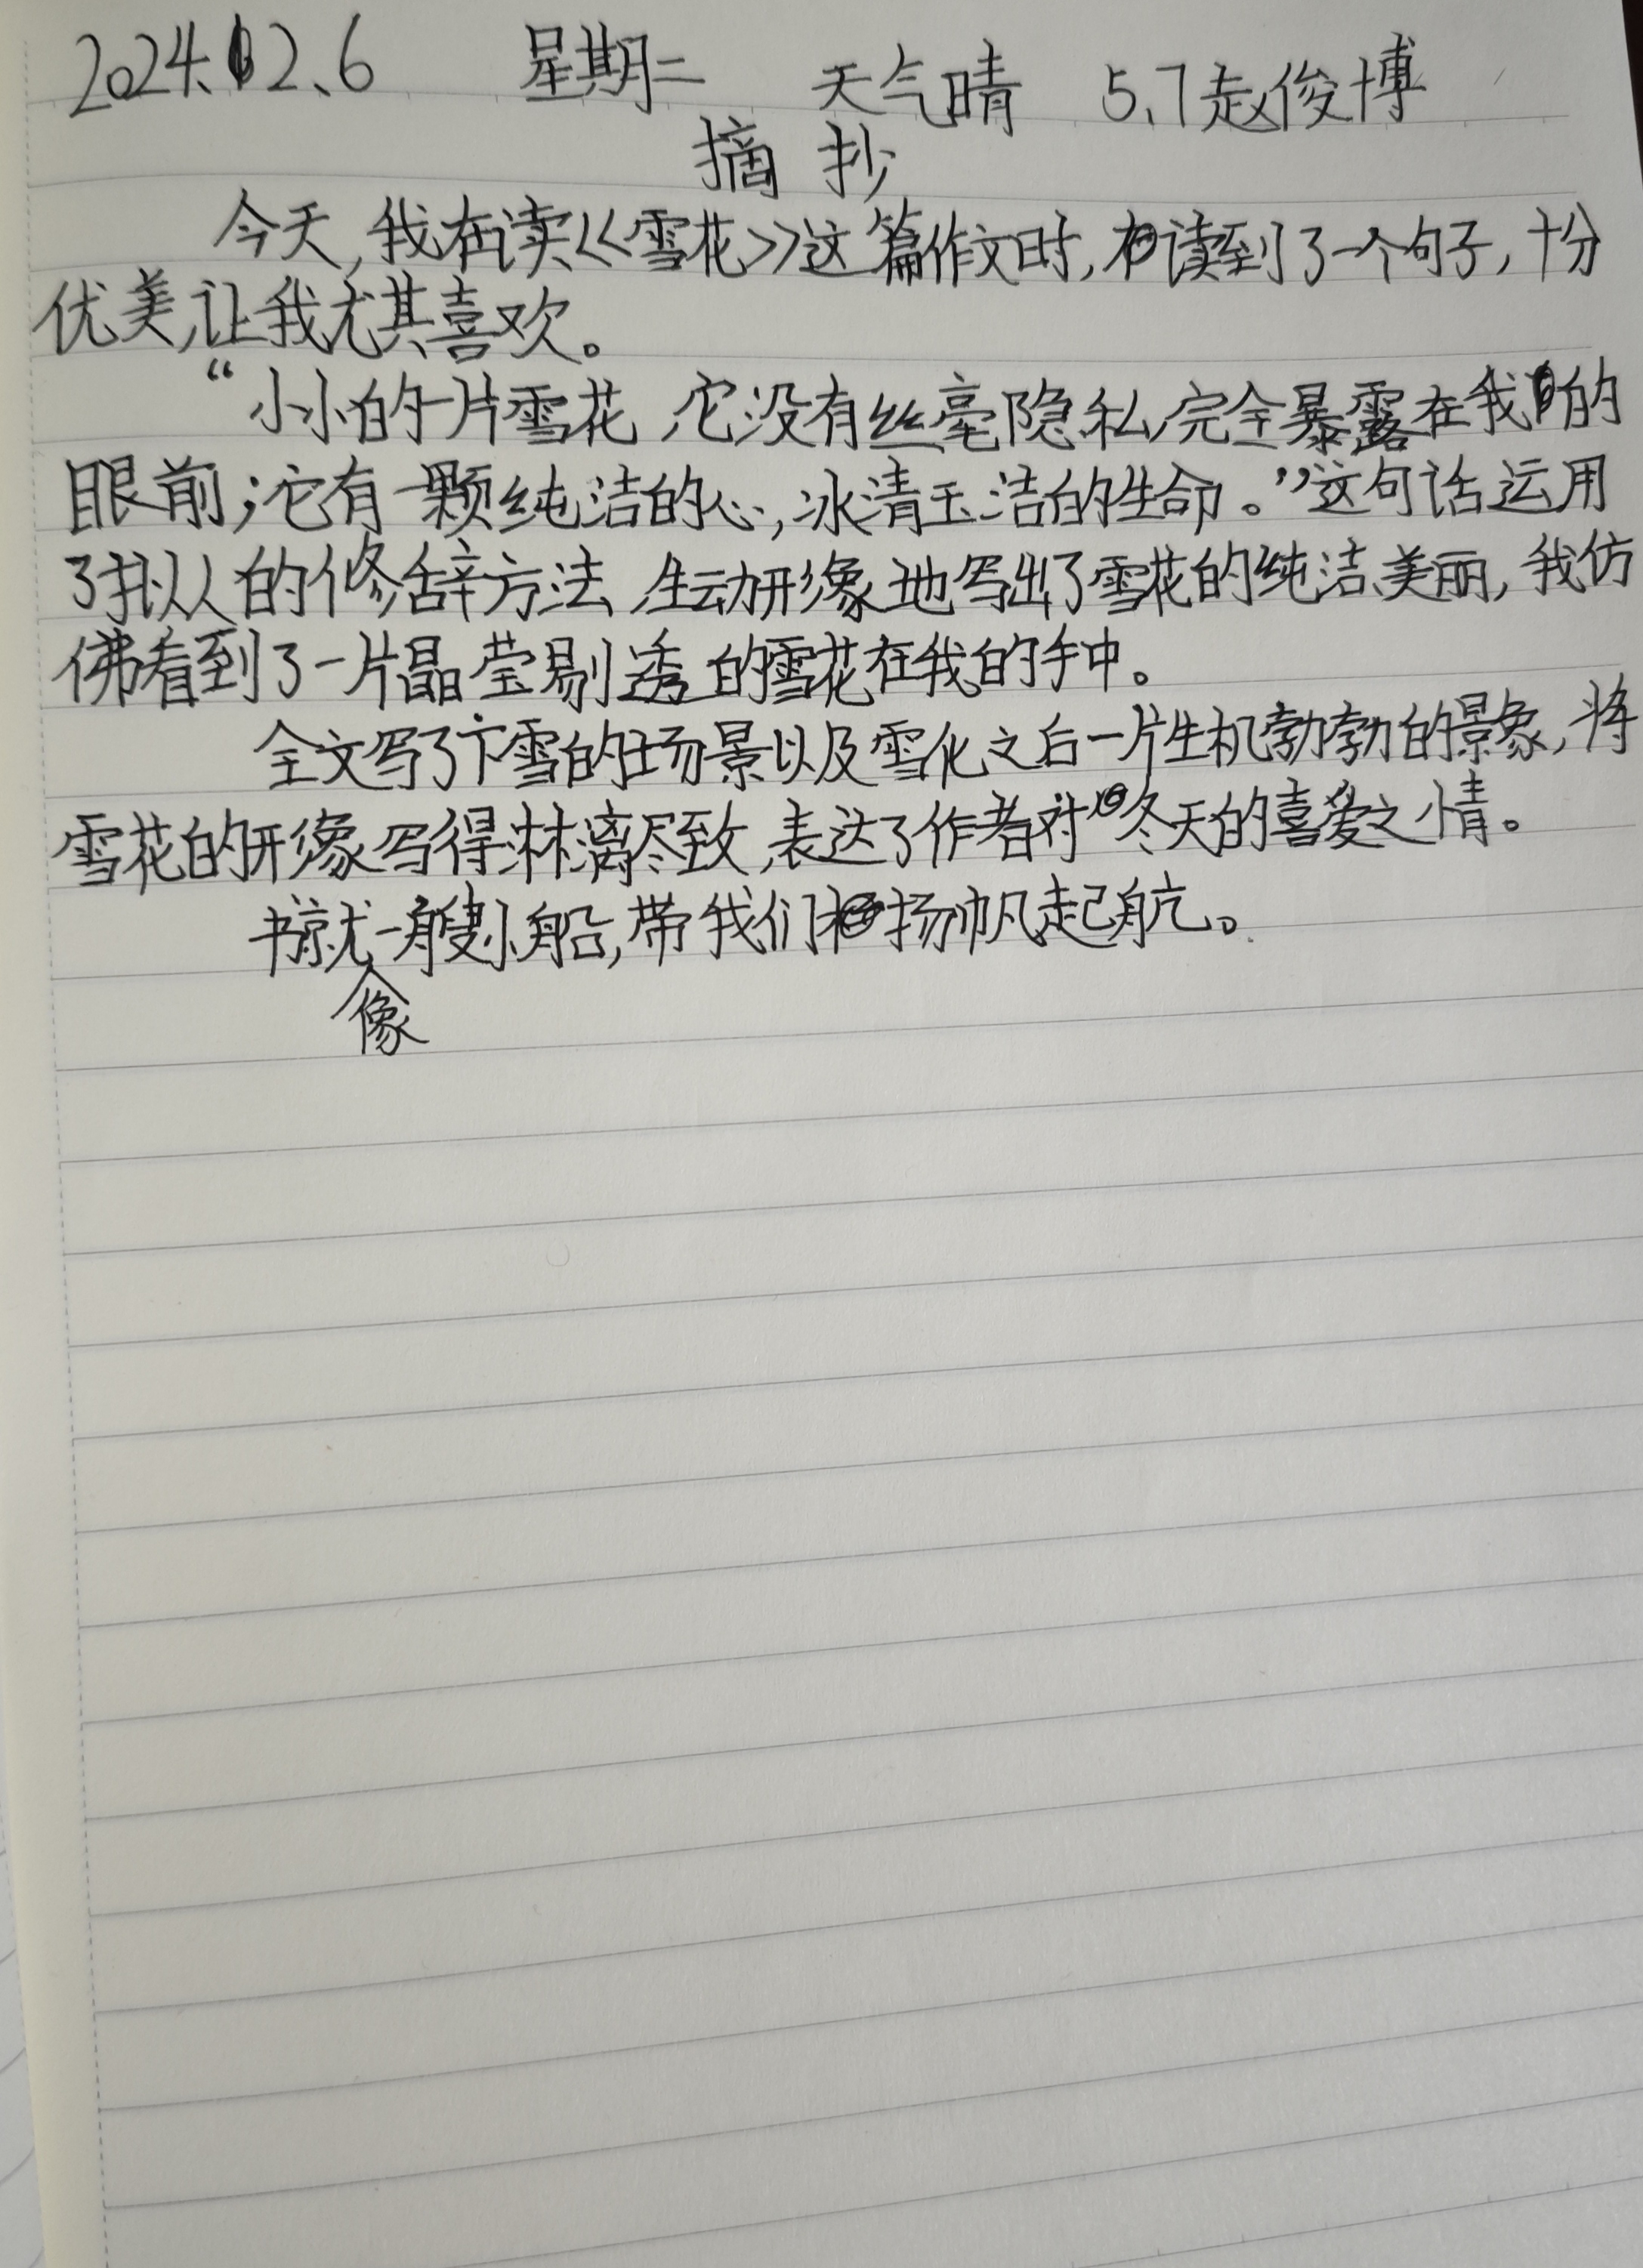 2024、2、6 星期二 天气晴 5、7赵俊博
摘抄
今天,我在读《雪花》这篇作文时,读到了一个句子,十分
优美,让我尤其喜欢。
“小小的一片雪花,它没有丝毫隐私,完全暴露在我的
眼前;它有一颗纯洁的心,冰清玉洁的生命。”这句话运用
了拟人的修辞方法,生动形像地写出了雪花的纯洁、美丽,我仿
佛看到了一片晶莹剔透的雪花在我的手中。
全文写了下雪的场景以及雪化之后一片生机勃勃的景象,将
雪花的形像写得淋漓尽致,表达了作者对冬天的喜爱之情。
书就像一艘小船,带我们扬帆起航。